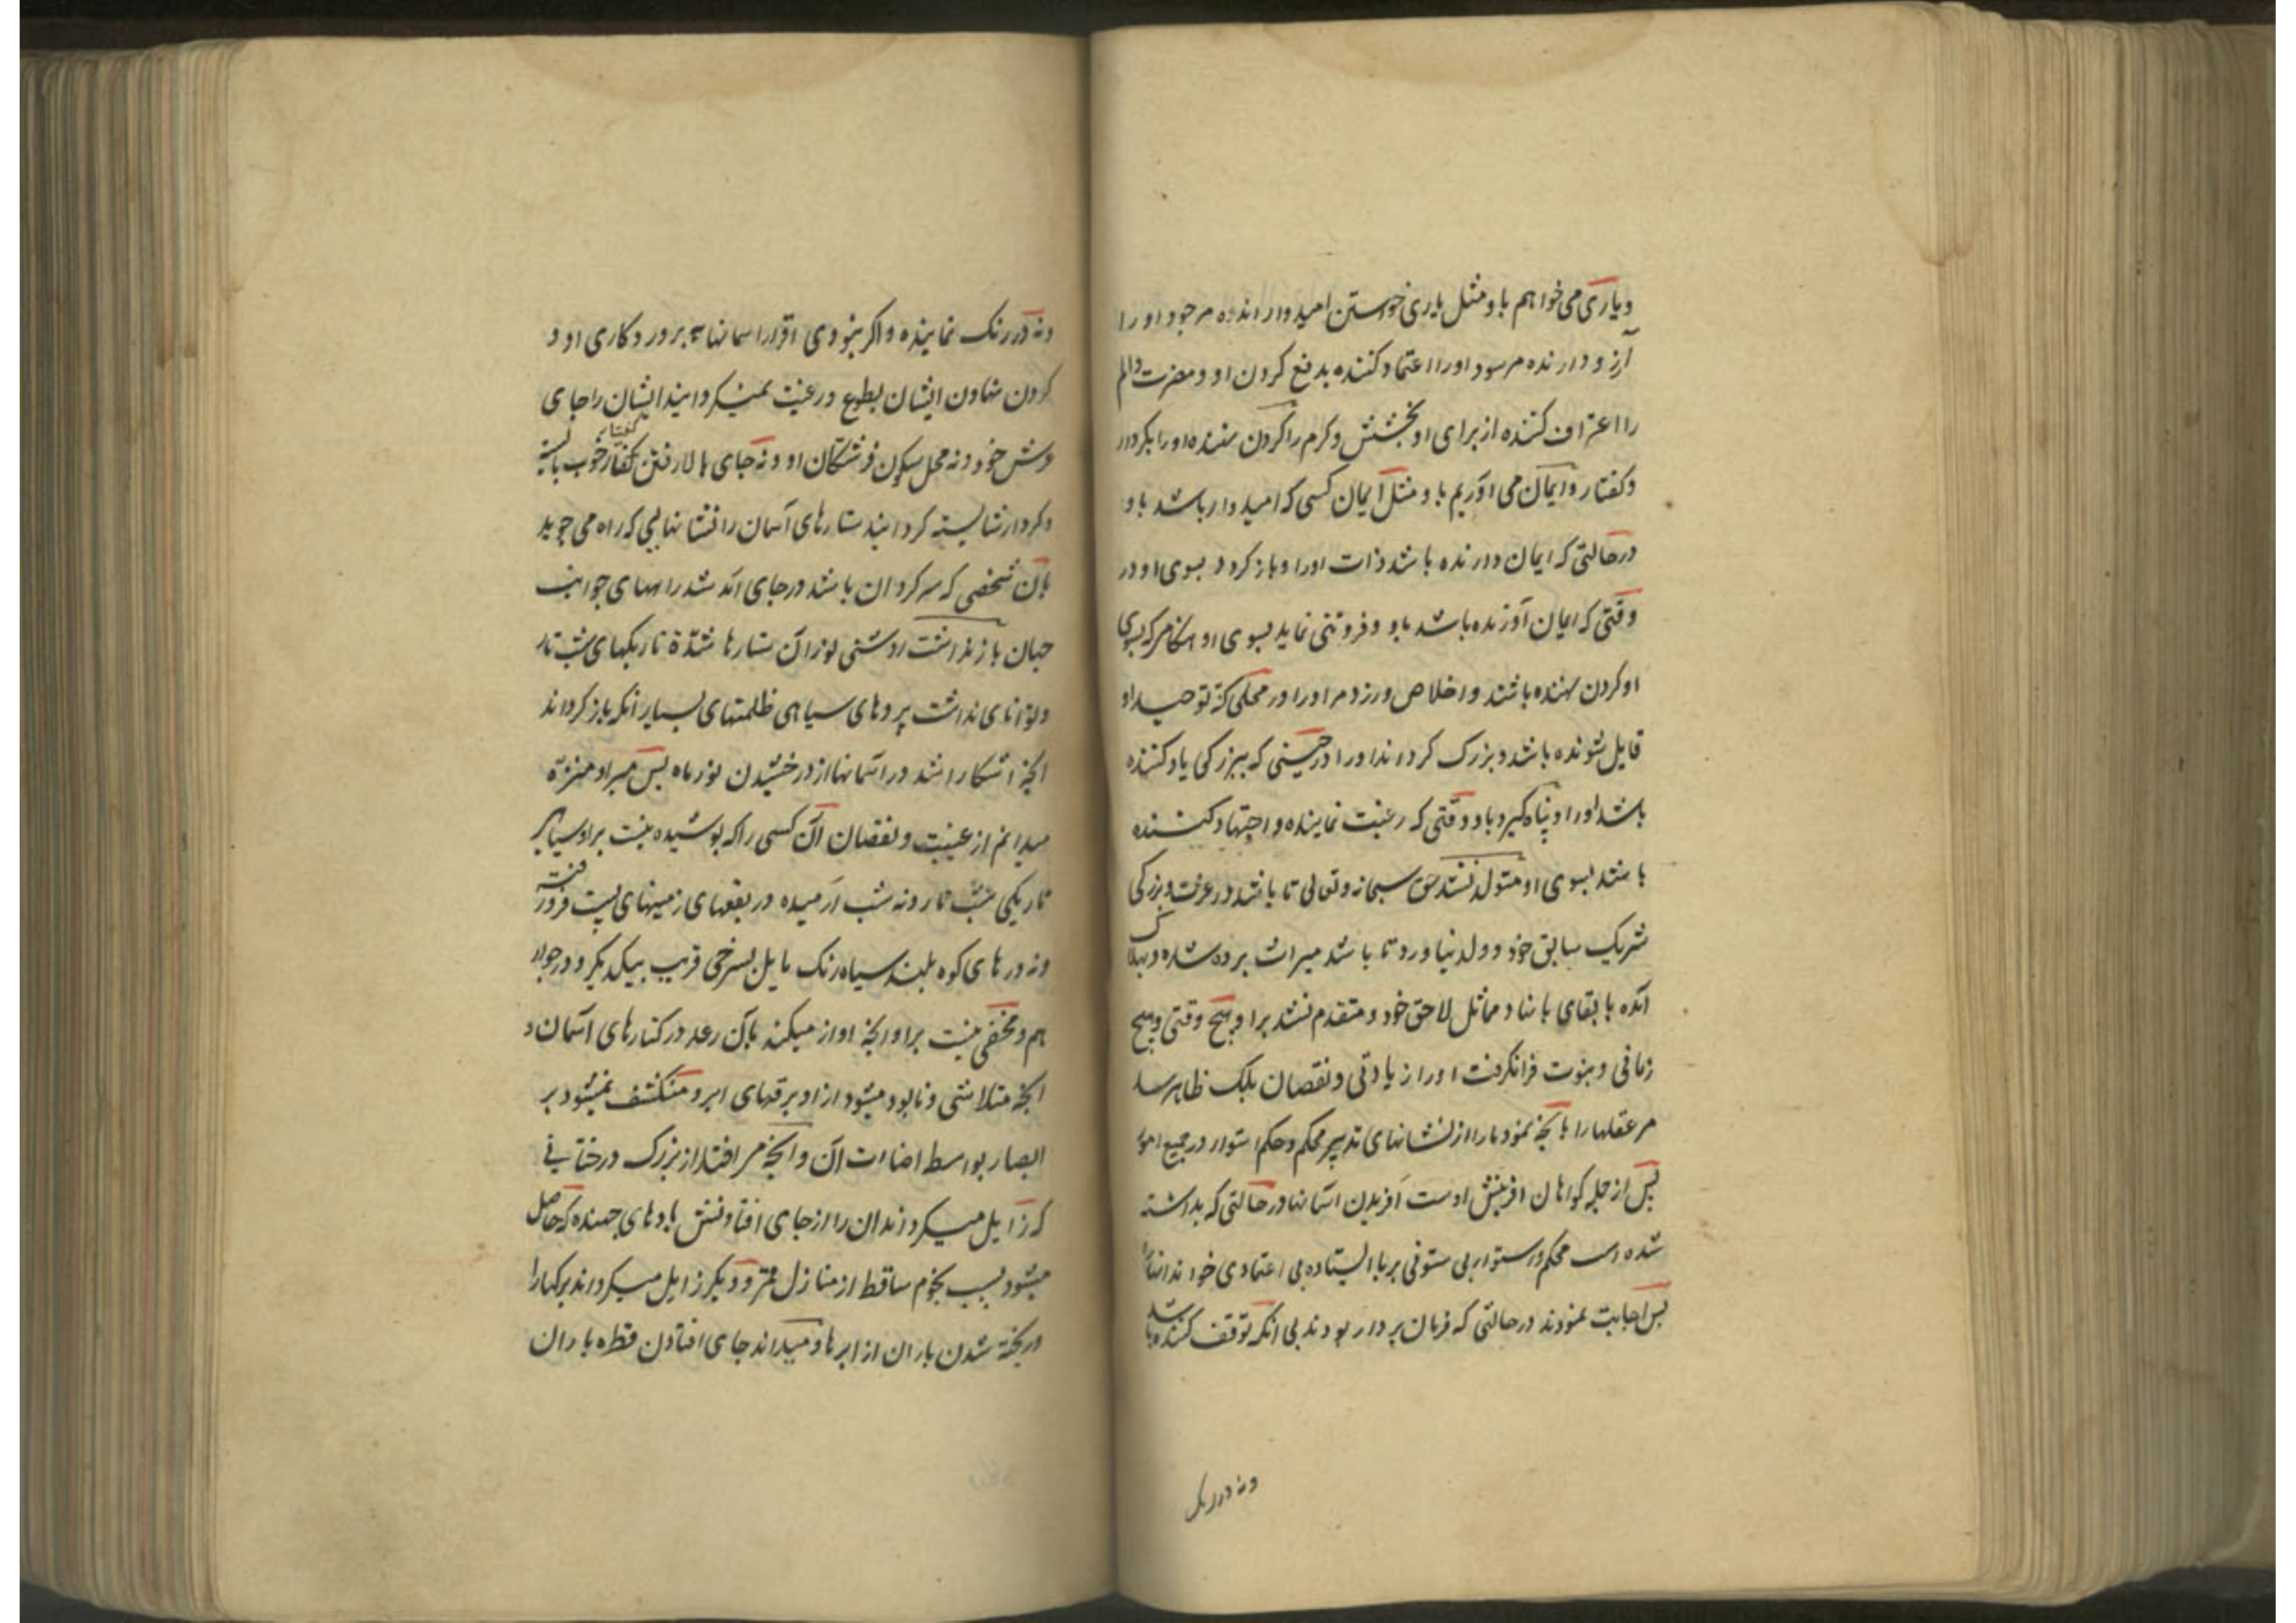 ویاری می خواهم باو مثل یاری خواستن امیدوار انده مر جود او را
آرزو دارنده مر سود اورا اعتماد کننده بدفع کردن او ومضرت والم
را اعتراف کننده از برای او بخشش وکرم را کردن نهنده او را بکردار
وکفتار وایمان می آوریم باو مثل ایمان کسی که امیدوار باشد باو
در حالتی که ایمان دارنده باشد ذات اورا وباز کردد بسوی او در
وقتی که ایمان آورنده باشد باو وفروتنی نماید بسوی او هنکامی که بسوی
او کردن نهنده باشند واخلاص ورزد مر اورا در محلی که توحید او
قایل شونده باشد وبزرک کرداند اورا در حینی که ببزرکی یاد کننده
باشد اورا وپناه کیرد باو وقتی که رغبت نماینده واجتهاد کننده
باشد بسوی او متولد نشد حق سبحانه وتعالی تا باشد در عزت وبزرکی
شریک سابق خود وولد نیاورد تا باشد میراث برده شده وبهلاک
آمده با بقای با مماثل لاحق خود ومتقدم نشد بر او هیچ وقتی وهیچ
زمانی وبنوبت فرا نکرفت اورا زیادتی ونقصان بلکه ظاهر شد
مر عقلها را بآنچه نمود مارا از نشانهای تدبیر محکم وحکم استوار در جمیع امور
پس از جمله کواهان افرینش اوست آفریدن اسمانها در حالتی که بداشته
شده است محکم واستوار بی ستونی برپا ایستاده بی اعتمادی خواند انها را
پس اجابت نمودند در حالتی که فرمان بردار بودند بی انکه توقف کننده باشند
ونه درنک
ونه درنک نماینده واکر نبودی اقرار اسمانها به پروردکاری او و
کردن نهادن ایشان بطوع ورغبت نمیکردانید ایشان را جای
عرش خود ونه محل سکون فرشتکان او ونه جای بالا رفتن کفتار خوب پاکیزه
وکردار شایسته کردانید ستارهای آسمان را نشانهایی که راه می جوید
بآن شخصی که سرکردان باشد در جای آمد شد راههای جوانب
جهان باز نداشت روشنی نور آن ستارها شدة تاریکیهای شب تار
وتوانای نداشت پردهای سیاهی ظلمتهای بسیار انکه باز کرداند
انچه اشکارا شد در اسمانها از درخشیدن نور ماه پس مبرا ومنزه
میدانم از عیب ونقصان آن کسی را که پوشیده نیست بر او سیاهی
تاریکی شب تار ونه شب آرمیده در بقعهای زمینهای پست فرو رفته
ونه در های کوه بلند سیاه رنک مایل بسرخی قریب بیکدیکر ودر جوار
هم ومخفی نیست بر او انچه اواز میکند بآن رعد در کنارهای اسمان و
انچه متلاشی ونابود میشود از او برقهای ابر ومنکشف نمیشود بر
ابصار بواسطه اضاءات آن وآنچه می افتد از بزرک درختانی
که زایل میکرداند ان را از جای افتادنش بادهای جهنده که حاصل
میشود بسبب نجوم ساقط از منازل قمر ودیکر زایل میکرداند برکها را
وریخته شدن باران از ابرها ومیداند جای افتادن قطره باران